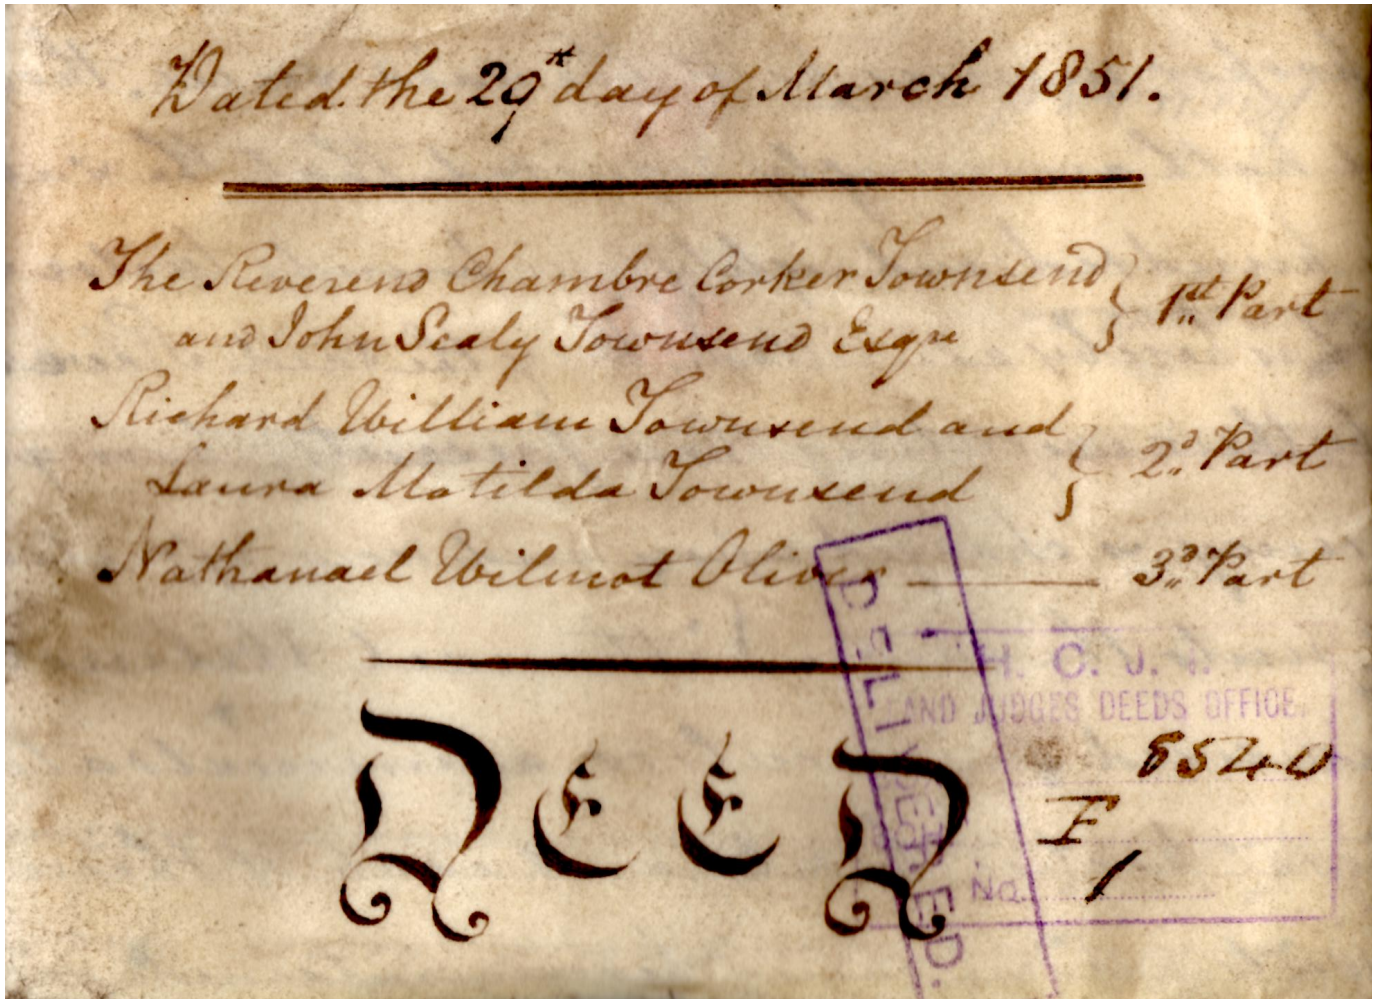 Dated the 29th day of March 1851.
The Reverend Chambre Corker Townsend
and John Sealy Townsend Esqre
} 1st Part
Richard William Townsend and
Laura Matilda Townsend
} 2d. Part
Nathanael Wilmot Oliver — 3d. Part
DEED
DELIVERED.
H. C. J. I.
LAND JUDGES DEEDS OFFICE.
8540
F
No. 1